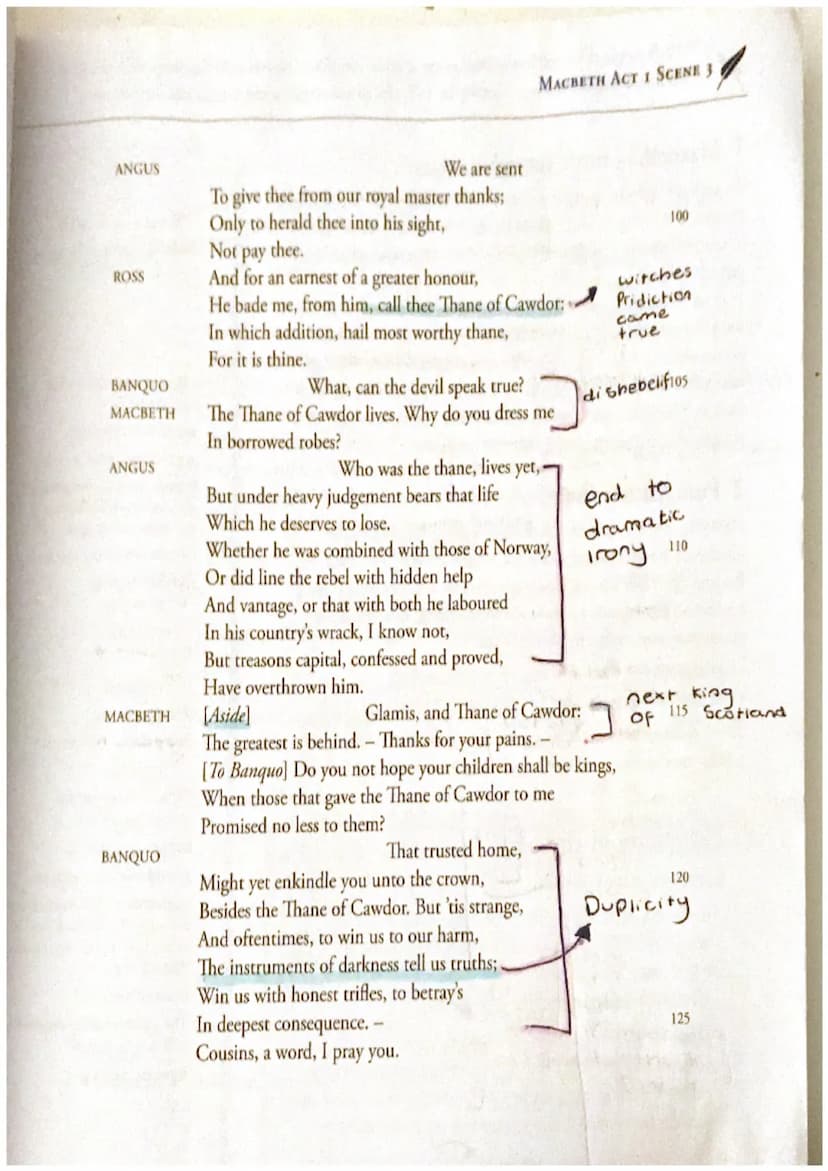 MACBETH ACT 1 SCENE 3
ANGUS We are sent
To give thee from our royal master thanks;
Only to herald thee into his sight, 100
Not pay thee.
ROSS And for an earnest of a greater honour,
He bade me, from him, call thee Thane of Cawdor:
In which addition, hail most worthy thane,
For it is thine.
witches
Pridiction
came
true
BANQUO What, can the devil speak true? 105
MACBETH The Thane of Cawdor lives. Why do you dress me
In borrowed robes?
dishebelif
ANGUS Who was the thane, lives yet,
But under heavy judgement bears that life
Which he deserves to lose.
Whether he was combined with those of Norway, 110
Or did line the rebel with hidden help
And vantage, or that with both he laboured
In his country's wrack, I know not,
But treasons capital, confessed and proved,
Have overthrown him.
end to
dramatic
irony
MACBETH [Aside] Glamis, and Thane of Cawdor: 115
The greatest is behind. – Thanks for your pains. –
[To Banquo] Do you not hope your children shall be kings,
When those that gave the Thane of Cawdor to me
Promised no less to them?
next king
of Scotland
BANQUO That trusted home,
Might yet enkindle you unto the crown, 120
Besides the Thane of Cawdor. But 'tis strange,
And oftentimes, to win us to our harm,
The instruments of darkness tell us truths;
Win us with honest trifles, to betray's
In deepest consequence. – 125
Cousins, a word, I pray you.
Duplicity